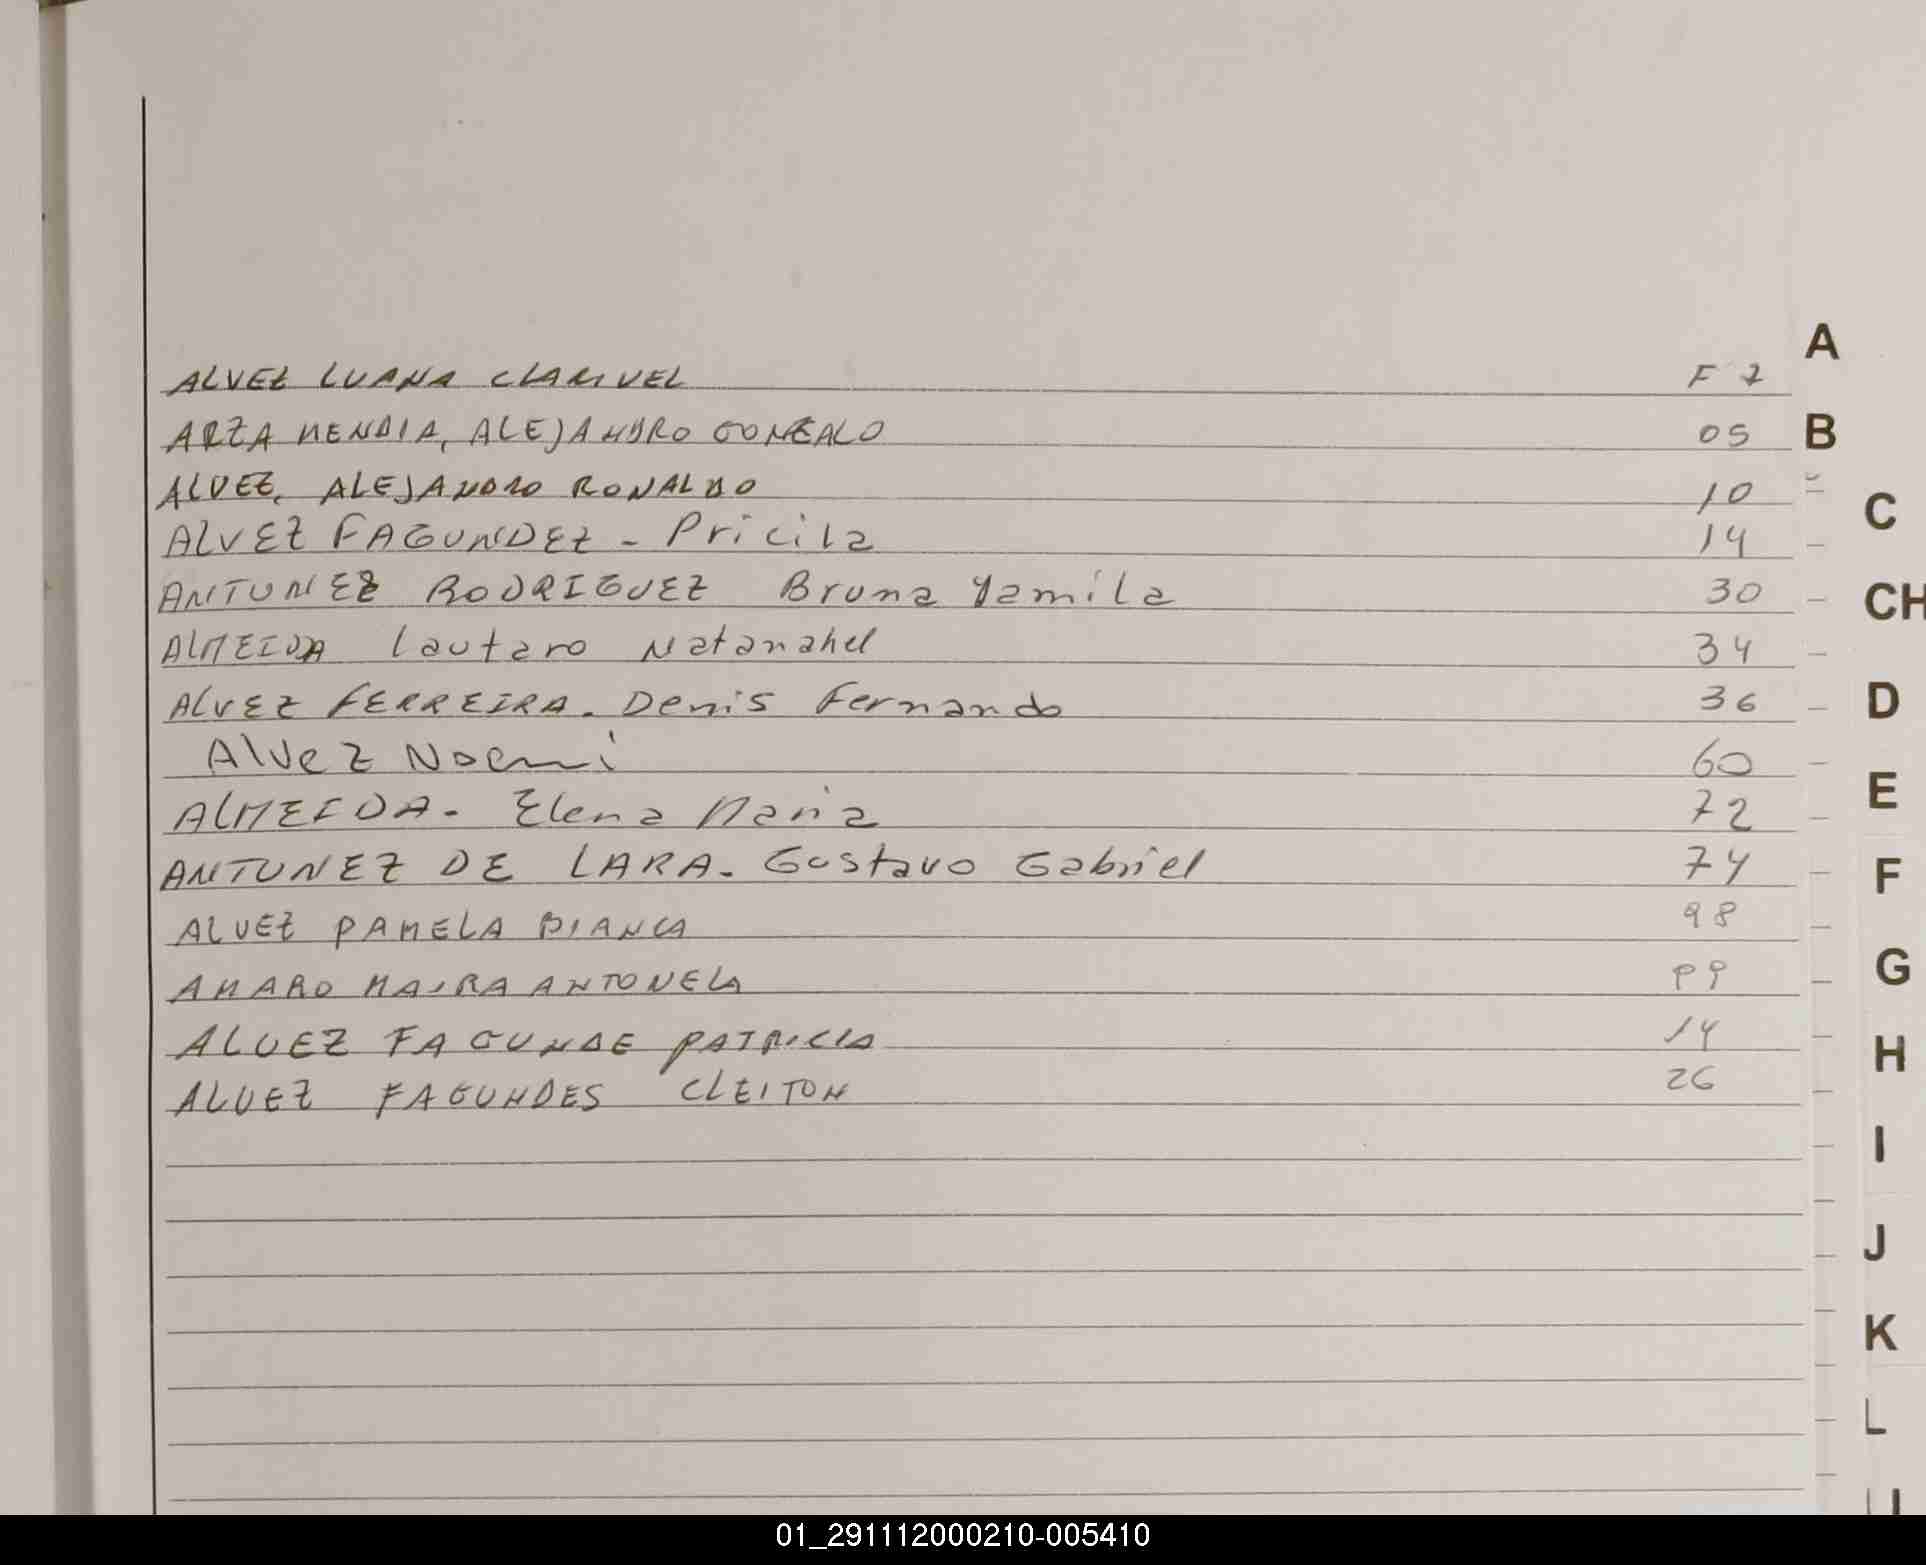 ALVEZ LUANA CLARIVEL F 7
ARZA MENDIA, ALEJANDRO GONZALO 05
ALVEZ, ALEJANDRO RONALDO 10
ALVEZ FAGUNDEZ - Pricila 14
ANTUNEZ RODRIGUEZ Bruna Yamila 30
ALMEIDA Lautaro Natanahel 34
ALVEZ FERREIRA. Denis Fernando 36
Alvez Noemi 60
ALMEIDA - Elena Maria 72
ANTUNEZ DE LARA - Gustavo Gabriel 74
ALVEZ PAMELA BIANCA 98
AMARO MAIRA ANTONELA 99
ALVEZ FAGUNDE PATRICIA 14
ALVEZ FAGUNDES CLEITON 26
A
B
C
CH
D
E
F
G
H
I
J
K
L
01_291112000210-005410